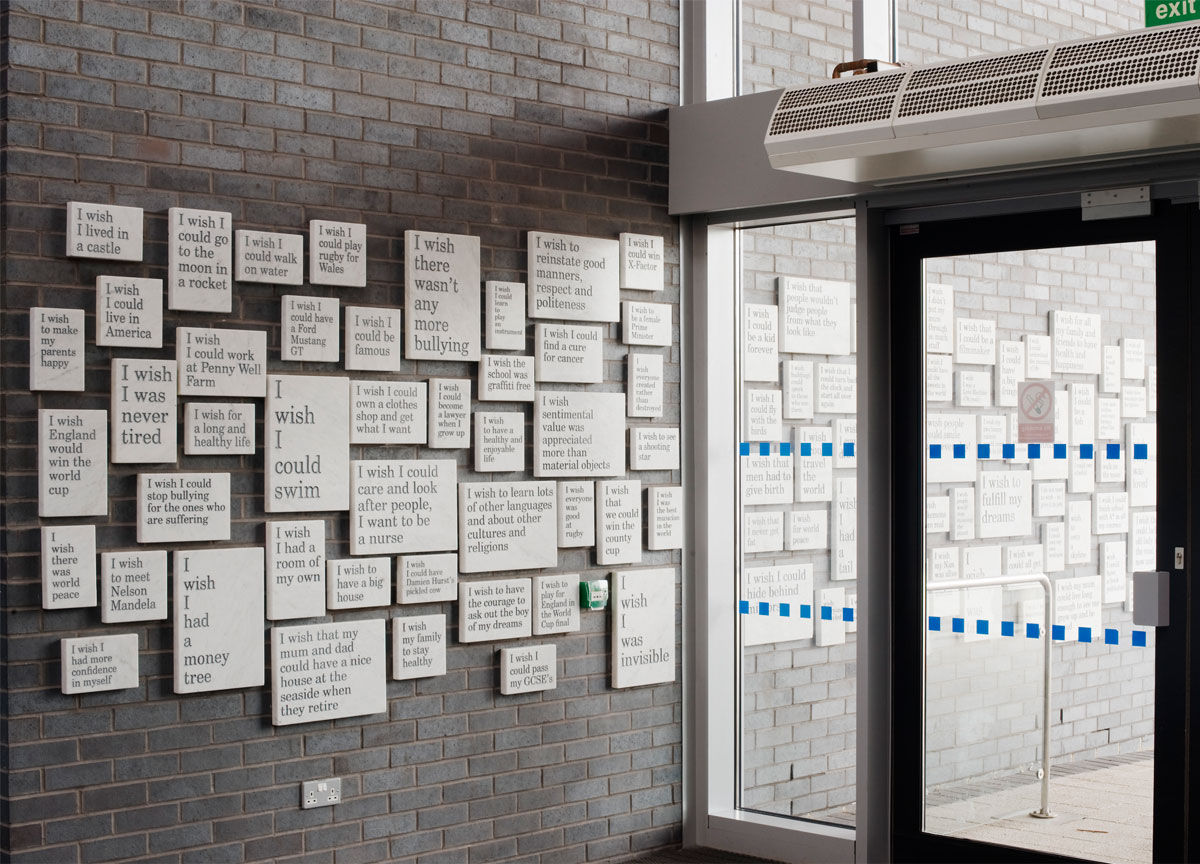 exit
I wish
I lived in
a castle
I wish I
could go
to the
moon in
a rocket
I wish I
could walk
on water
I wish I
could play
rugby for
Wales
I wish
there
wasn't
any
more
bullying
I wish to
reinstate good
manners,
respect and
politeness
I wish I
could win
X-Factor
I wish
to make
my
parents
happy
I wish
I could
live in
America
I wish
I could work
at Penny Well
Farm
I wish I
could have
a Ford
Mustang
GT
I wish I
could be
famous
I wish
I could
learn
to
play
an
instrument
I wish I could
find a cure
for cancer
I wish
to be
a female
Prime
Minister
I wish
I was
never
tired
I wish for
a long and
healthy life
I
wish
I
could
swim
I wish I could
own a clothes
shop and get
what I want
I wish
I could
become
a lawyer
when I
grow up
I wish the
school was
graffiti free
I wish
to have
a healthy
and
enjoyable
life
I wish
sentimental
value was
appreciated
more than
material objects
I wish
everyone
created
rather
than
destroyed
I wish to see
a shooting
star
I wish
England
would
win the
world
cup
I wish I could
stop bullying
for the ones who
are suffering
I wish I could
care and look
after people,
I want to be
a nurse
I wish to learn lots
of other languages
and about other
cultures and
religions
I wish
everyone
was
good
at
rugby
I wish
that
we could
win the
county
cup
I wish
I was
the best
musician
in the
world
I wish
there
was
world
peace
I wish
to meet
Nelson
Mandela
I
wish
I
had
a
money
tree
I wish
I had a
room of
my own
I wish to
have a big
house
I wish
I could have
Damien Hurst's
pickled cow
I wish to have
the courage to
ask out the boy
of my dreams
I wish to
play for
England in
the World
Cup final
I
wish
I
was
invisible
I wish
I had more
confidence
in myself
I wish that my
mum and dad
could have a nice
house at the
seaside when
they retire
I wish
my family
to stay
healthy
I wish I
could pass
my GCSE's
I wish that
people wouldn't
judge people
from what they
look like
I wish I
could
be a kid
forever
I wish
that I could
turn back the
clock and
start all
over again
I wish I
could fly
with the
birds
I wish that
men had to
give birth
I wish to
travel
the
world
I wish
I
had
a
tail
I wish
for world
peace
I wish I could
hide behind
I wish that
I could be a
filmmaker
I wish for all
my family and
friends to be
health and
happiness
I wish
to fulfill my
dreams